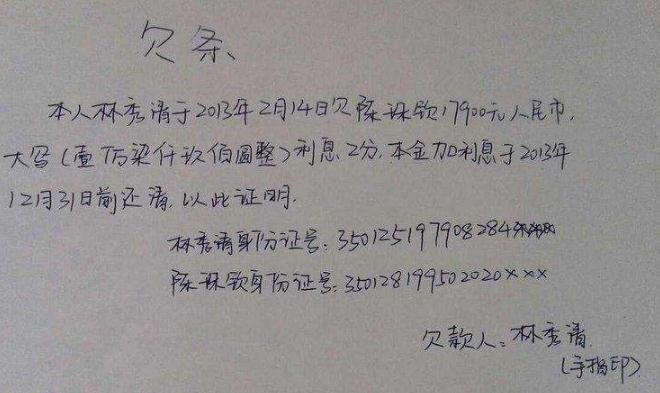 欠条
本人林秀清于2013年2月14日欠陈珠钦17900元人民币,
大写(壹万柒仟玖佰圆整)利息2分,本金加利息于2013年
12月31日前还清,以此证明.
林秀清身份证号:350125197908284
陈珠钦身份证号:350128199502020×××
欠款人:林秀清
(手指印)